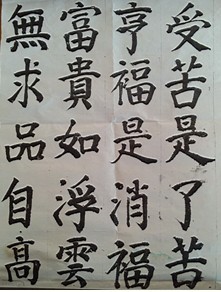 受苦是了苦
亨福是消福
富貴如浮雲
無求品自高